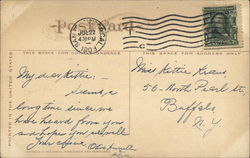 Post Card
THIS SPACE FOR CORRESPONDENCE
THIS SPACE FOR ADDRESS ONLY
PRINTED IN THE UNITED STATES
JUL 22
430 PM
C
My dear Kittie; —
Seems a
long time since we
have heard from you
and hope you are well
Your
Miss Kittie
56 - North Pearl St.
Buffalo
N.Y.